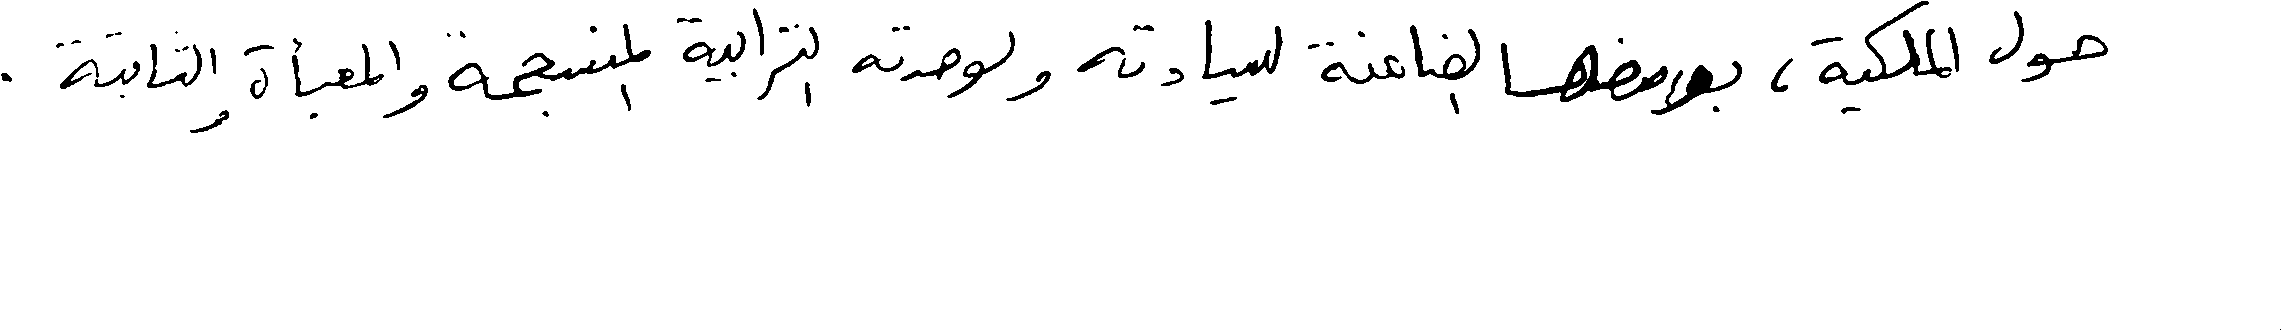 حول الملكية، بوصفها الضامنة لسيادته ولوحدته الترابية المنسجمة والمعبأة والثابتة .